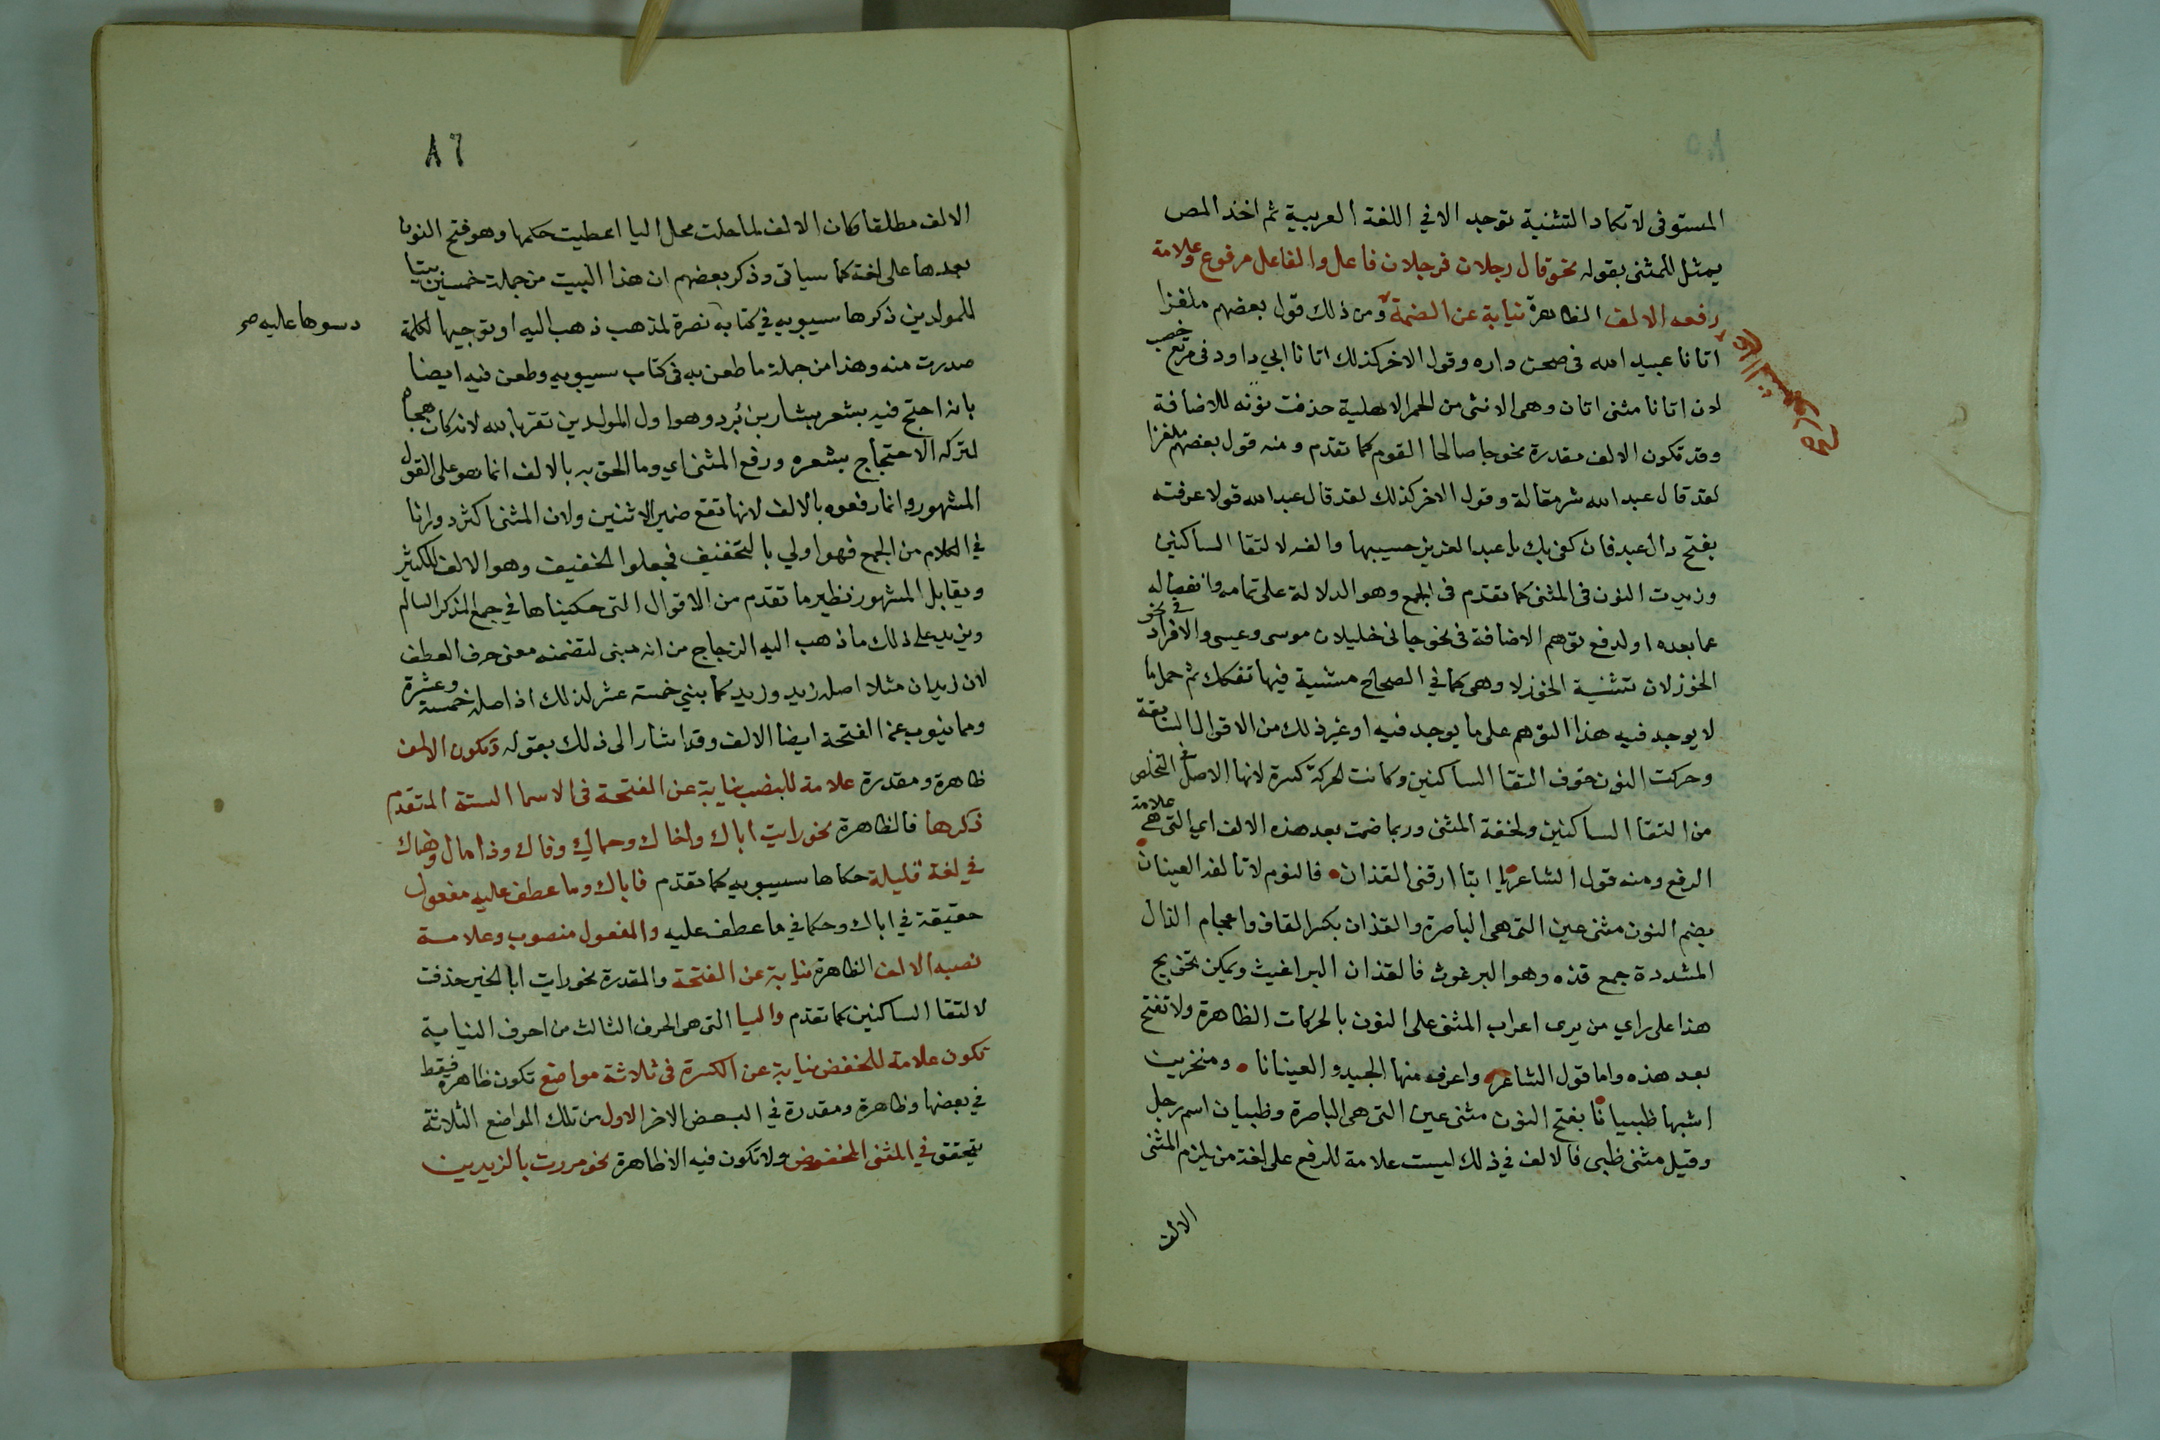 ٨٥
المستوفى لا تكاد التثنية توجد الا في اللغة العربية ثم اخذ المص
يمثل للمثنى بقوله نحو قال رجلان فرجلان فاعل والفاعل مرفوع وعلامة
رفعه الالف الظاهرة نيابة عن الضمة ومن ذلك قول بعضهم ملغزا
اتانا عبيد الله في صحن داره وقول الاخر كذلك اتانا ابي داود في مرتع خصب
لان اتانا مثنى اتان وهى الانثى من الحمر الاهلية حذفت نونه للاضافة
وقد تكون الالف مقدرة نحو جا صالحا القوم كما تقدم ومنه قول بعضهم ملغزا
لقد قال عبد الله شر مقالة وقول الاخر كذلك لقد قال عبد الله قولا عرفته
بفتح دال عبد فان كفى بك يا عبد العزيز حسيبها والفه لالتقا الساكنين
وزيدت النون في المثنى كما تقدم في الجمع وهو الدلالة على تمامه وانفصاله
عما بعده او لدفع توهم الاضافة في نحو جاني خليلان موسى وعيسى والافراد في نحو
الخوزلان تثنية الخوزلا وهى كما في الصحاح مشية فيها تفكك ثم حمل ما
لا يوجد فيه هذا التوهم على ما يوجد فيه او غير ذلك من الاقوال السابقة
وحركت النون خوف التقا الساكنين وكانت الحركة كسرة لانها الاصل في التخلص
من التقا الساكنين ولخفة المثنى وربما ضمت بعد هذه الالف اي التي هي علامة
الرفع ومنه قول الشاعر يا ابتا ارقنى القذان فالنوم لا تالفه العينان
بضم النون مثنى عين التي هى الباصرة والقذان بكسر القاف واعجام الذال
المشددة جمع قذه وهو البرغوث فالقذان البراغيث ويمكن تخريج
هذا على راي من يرى اعراب المثنى على النون بالحركات الظاهرة ولا تفتح
بعد هذه واما قول الشاعر واعرف منها الجيد والعينانا ومنخرين
اشبها ظبيانا بفتح النون مثنى عين التي هى الباصرة وظبيان اسم رجل
وقيل مثنى ظبي فالالف في ذلك ليست علامة للرفع على لغة من يلزم المثنى
الالف
٨٦
الالف مطلقا فكان الالف لما حلت محل اليا اعطيت حكمها وهو فتح النون
بعدها على لغة كما سياتى وذكر بعضهم ان هذا البيت من جملة خمسين بيتا
للمولدين ذكرها سيبويه في كتابه نصرة لمذهب ذهب اليه او توجيها لكلمة
دسوها عليه صح
صدرت منه وهذا من جملة ما طعن به في كتاب سيبويه وطعن فيه ايضا
بانه احتج فيه بشعر بشار بن برد وهو اول المولدين تقربا له لانه كان هجاه
لتركه الاحتجاج بشعره ورفع المثنى اي وما الحق به بالالف انما هو على القول
المشهور وانما رفعوه بالالف لانها تقع ضمير الاثنين ولان المثنى اكثر دورانا
في الكلام من الجمع فهو اولي بالتخفيف فجعلوا الخفيف وهو الالف للكثير
ويقابل المشهور نظير ما تقدم من الاقوال التي حكيناها في جمع المذكر السالم
ويزيد على ذلك ما ذهب اليه الزجاج من انه مبنى لتضمنه معنى حرف العطف
لان زيدان مثلا اصله زيد وزيد كما بني خمسة عشر لذلك اذ اصله خمسة وعشرة
ومما ينوب عن الفتحة ايضا الالف وقد اشار الى ذلك بقوله وتكون الالف
ظاهرة ومقدرة علامة للنصب نيابة عن الفتحة في الاسما الستة المتقدم
ذكرها فالظاهرة نحو رايت اباك واخاك وحماك وفاك وذا مال وهناك
في لغة قليلة حكاها سيبويه كما تقدم فاباك وما عطف عليه مفعول
حقيقة في اباك وحكما في ما عطف عليه والمفعول منصوب وعلامة
نصبه الالف الظاهرة نيابة عن الفتحة والمقدرة نحو رايت ابا الخير حذفت
لالتقا الساكنين كما تقدم واليا التي هى الحرف الثالث من احرف النيابة
تكون علامة للخفض نيابة عن الكسرة في ثلاثة مواضع تكون ظاهرة فقط
في بعضها وظاهرة ومقدرة في البعض الاخر الاول من تلك المواضع الثلاثة
يتحقق في المثنى المخفوض ولا تكون فيه الا ظاهرة نحو مررت بالزيدين